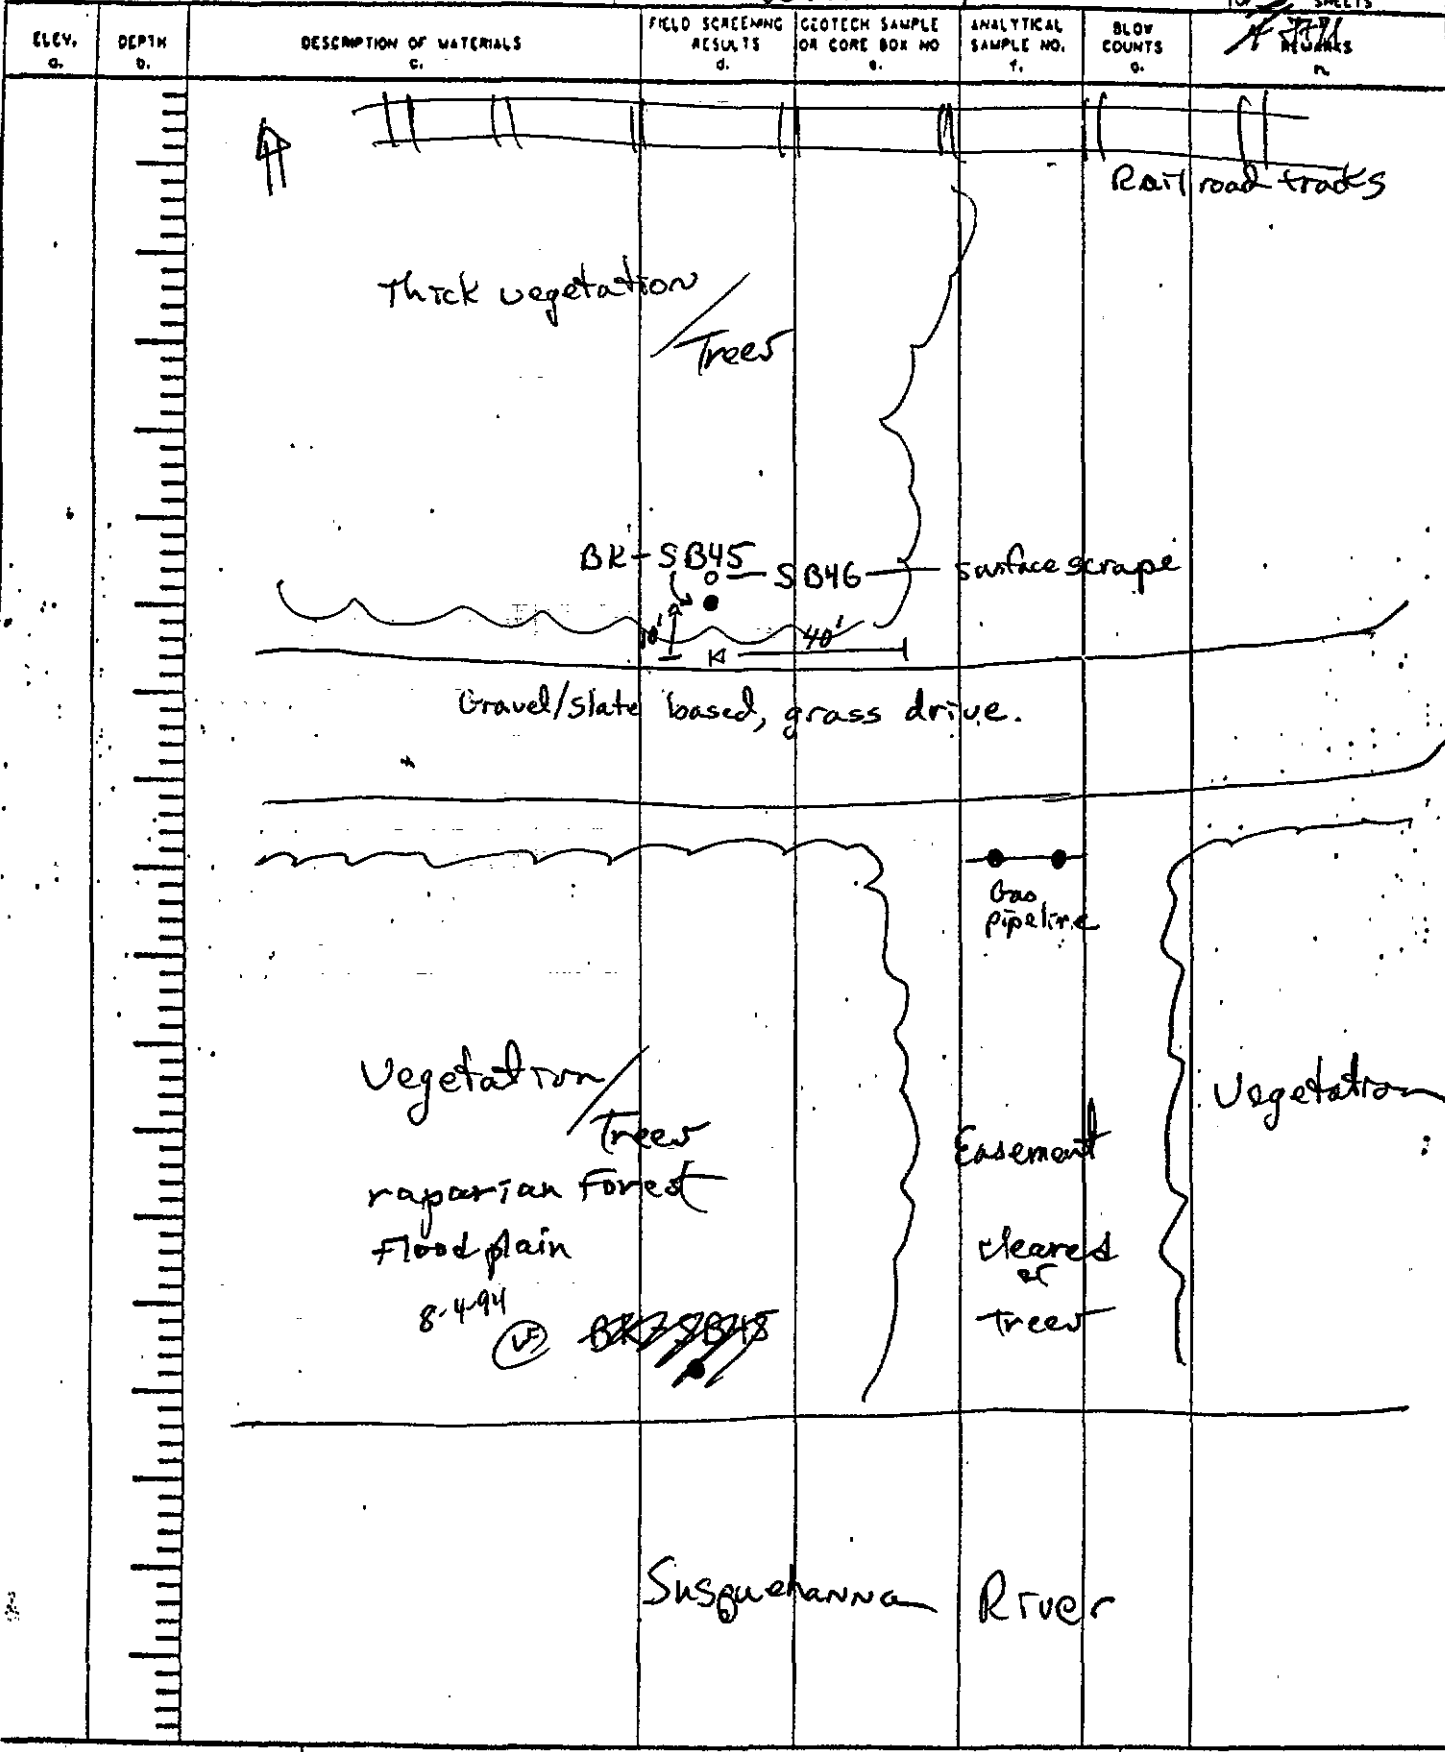 SHEETS
ELEV.
a.
DEPTH
b.
DESCRIPTION OF MATERIALS
c.
FIELD SCREENING
RESULTS
d.
GEOTECH SAMPLE
OR CORE BOX NO
e.
ANALYTICAL
SAMPLE NO.
f.
BLOW
COUNTS
g.
REMARKS
h.
Railroad tracks
Thick vegetation
/ Trees
BK-SB45
SB46 surface scrape
10'
40'
Gravel/slate based, grass drive.
Gas
pipeline
Vegetation/
Trees
raparian Forest
Flood plain
8-4-94
Easement
cleared
of
Trees
Vegetation
Susquehanna River